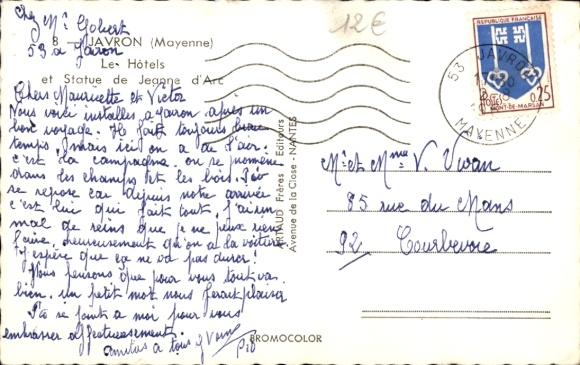 Chez Mr Gobert
53 a Javron
12 €
8 - JAVRON (Mayenne)
Les Hôtels
et Statue de Jeanne d'Arc
Chers Mauricette et Victor
Nous voici installés a Javron après un
bon voyage. Il fait toujours beau
temps, mais ici on a de l'air.
c'est la campagne. on se promène
dans les champs et les bois.
se repose car depuis notre arrivée
c'est lui qui fait tout. j'ai un
mal de reins que je ne peux rien
faire, heureusement qu'on a la voiture
J'espère que ça ne va pas durer!
Nous pensons que pour vous tout va
bien. un petit mot nous ferait plaisir
se joint a moi pour vous
embrasser affectueusement.
amitiés a tous
ARTAUD Frères - Editeurs
Avenue de la Close - NANTES
BROMOCOLOR
REPUBLIQUE FRANÇAISE
0,25
MONT-DE-MARSAN
53 JAVRON
MAYENNE
Mr et Mme V. Vivan
85 rue du Mans
92 Courbevoie